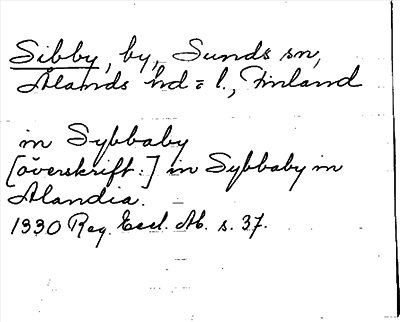 Sibby, by, Sunds sn,
Ålands hd = l., Finland
in Sybbaby
[överskrift:] in Sybbaby in
Alandia.
1330 Reg. Eccl. Ab. s. 37.